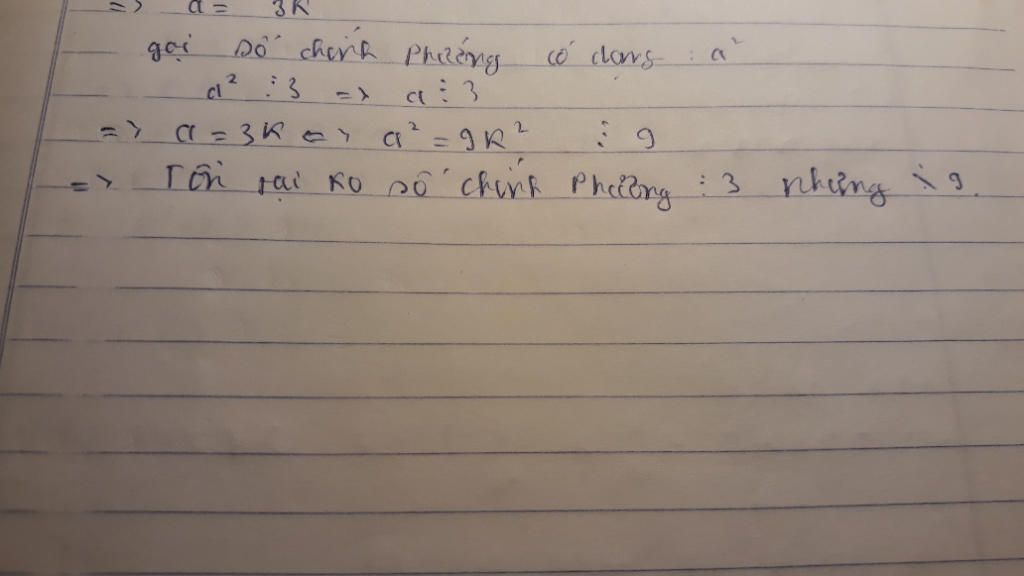 => a = 3K
gọi số chính phương có dạng : a²
a² ⋮ 3 => a ⋮ 3
=> a = 3K <=> a² = 9K² ⋮ 9
=> Tồn tại ko số chính phương ⋮ 3 nhưng ⋮̸ 9.